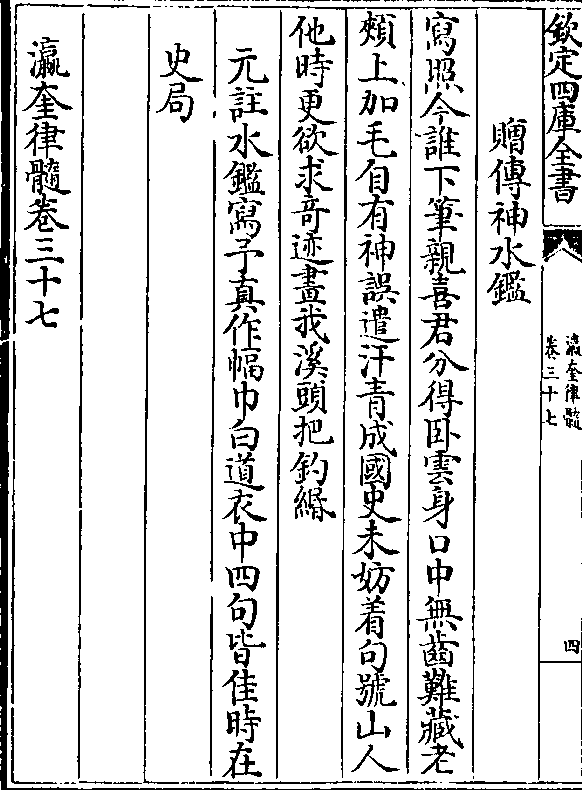 欽定四庫全書
瀛奎律髓
卷三十七
四
贈傳神水鑑
寫照今誰下筆親喜君分得卧雲身口中無齒難藏老
頰上加毛自有神誤遣汗青成國史未妨着句號山人
他時更欲求竒迹畫我溪頭把釣緡
元註水鑑寫予真作幅巾白道衣中四句皆佳時在
史局
瀛奎律髓卷三十七